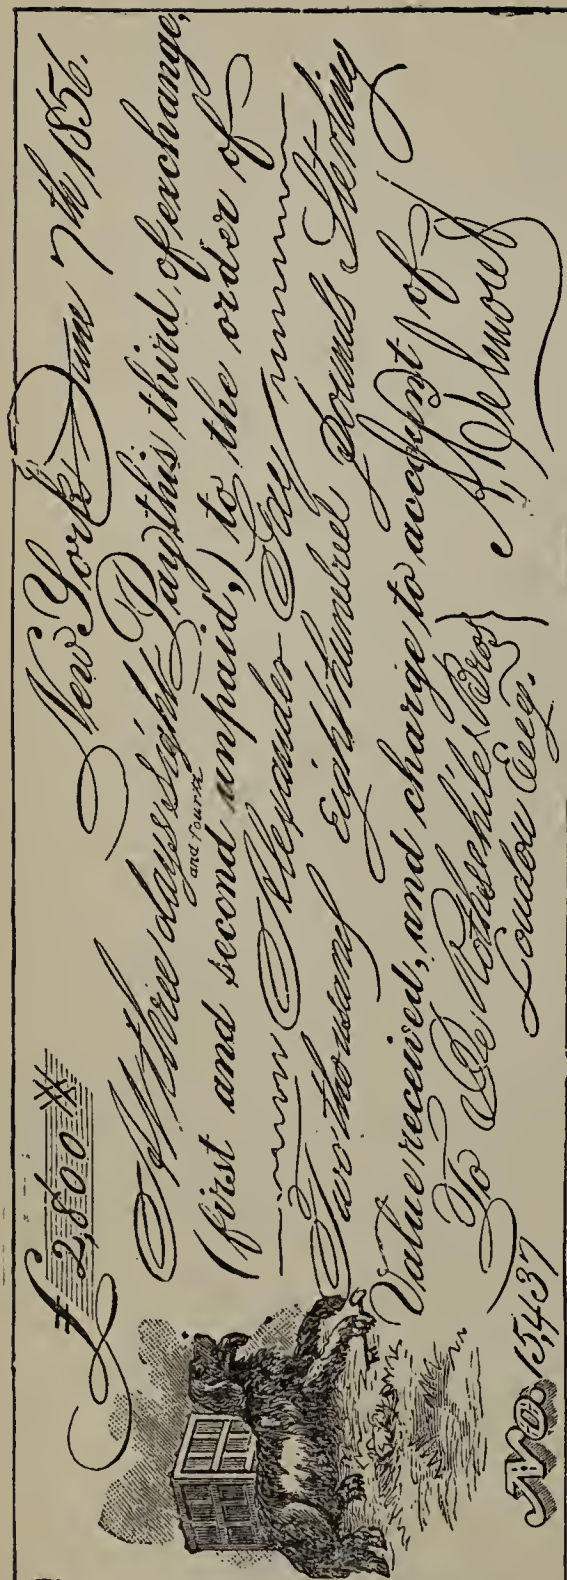 £ 2,800 XX
New York June 7th 1856.
At three days sight Pay this third of exchange,
and Fourth
(first and second unpaid,) to the order of
Alexander Gay
Two thousand Eight hundred Pounds Sterling
Value received, and charge to account of
To Rothschild & Bros
London Eng.
No. 15,437